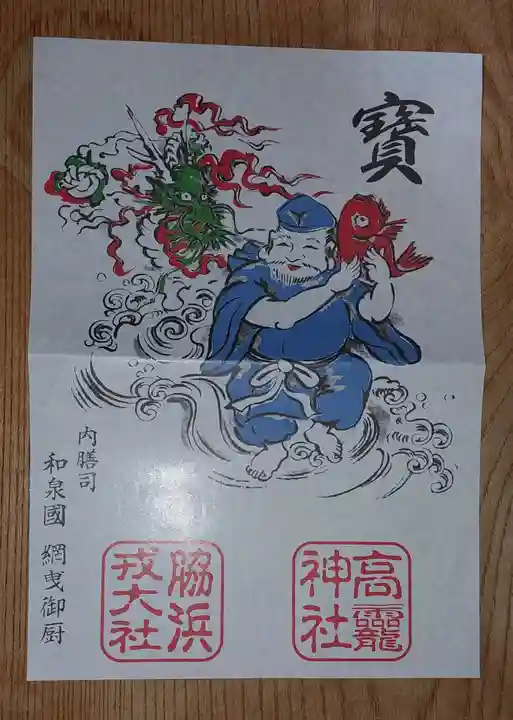 寶
高龗神社
脇浜戎大社
内膳司
和泉國 網曳御厨